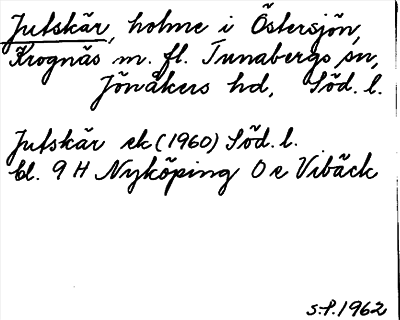 Jutskär, holme i Östersjön,
Krognäs m. fl. Tunabergs sn,
Jönåkers hd, Söd. l.
Jutskär ek (1960) Söd. l.
bl. 9 H Nyköping O e Vibäck
S:P. 1962